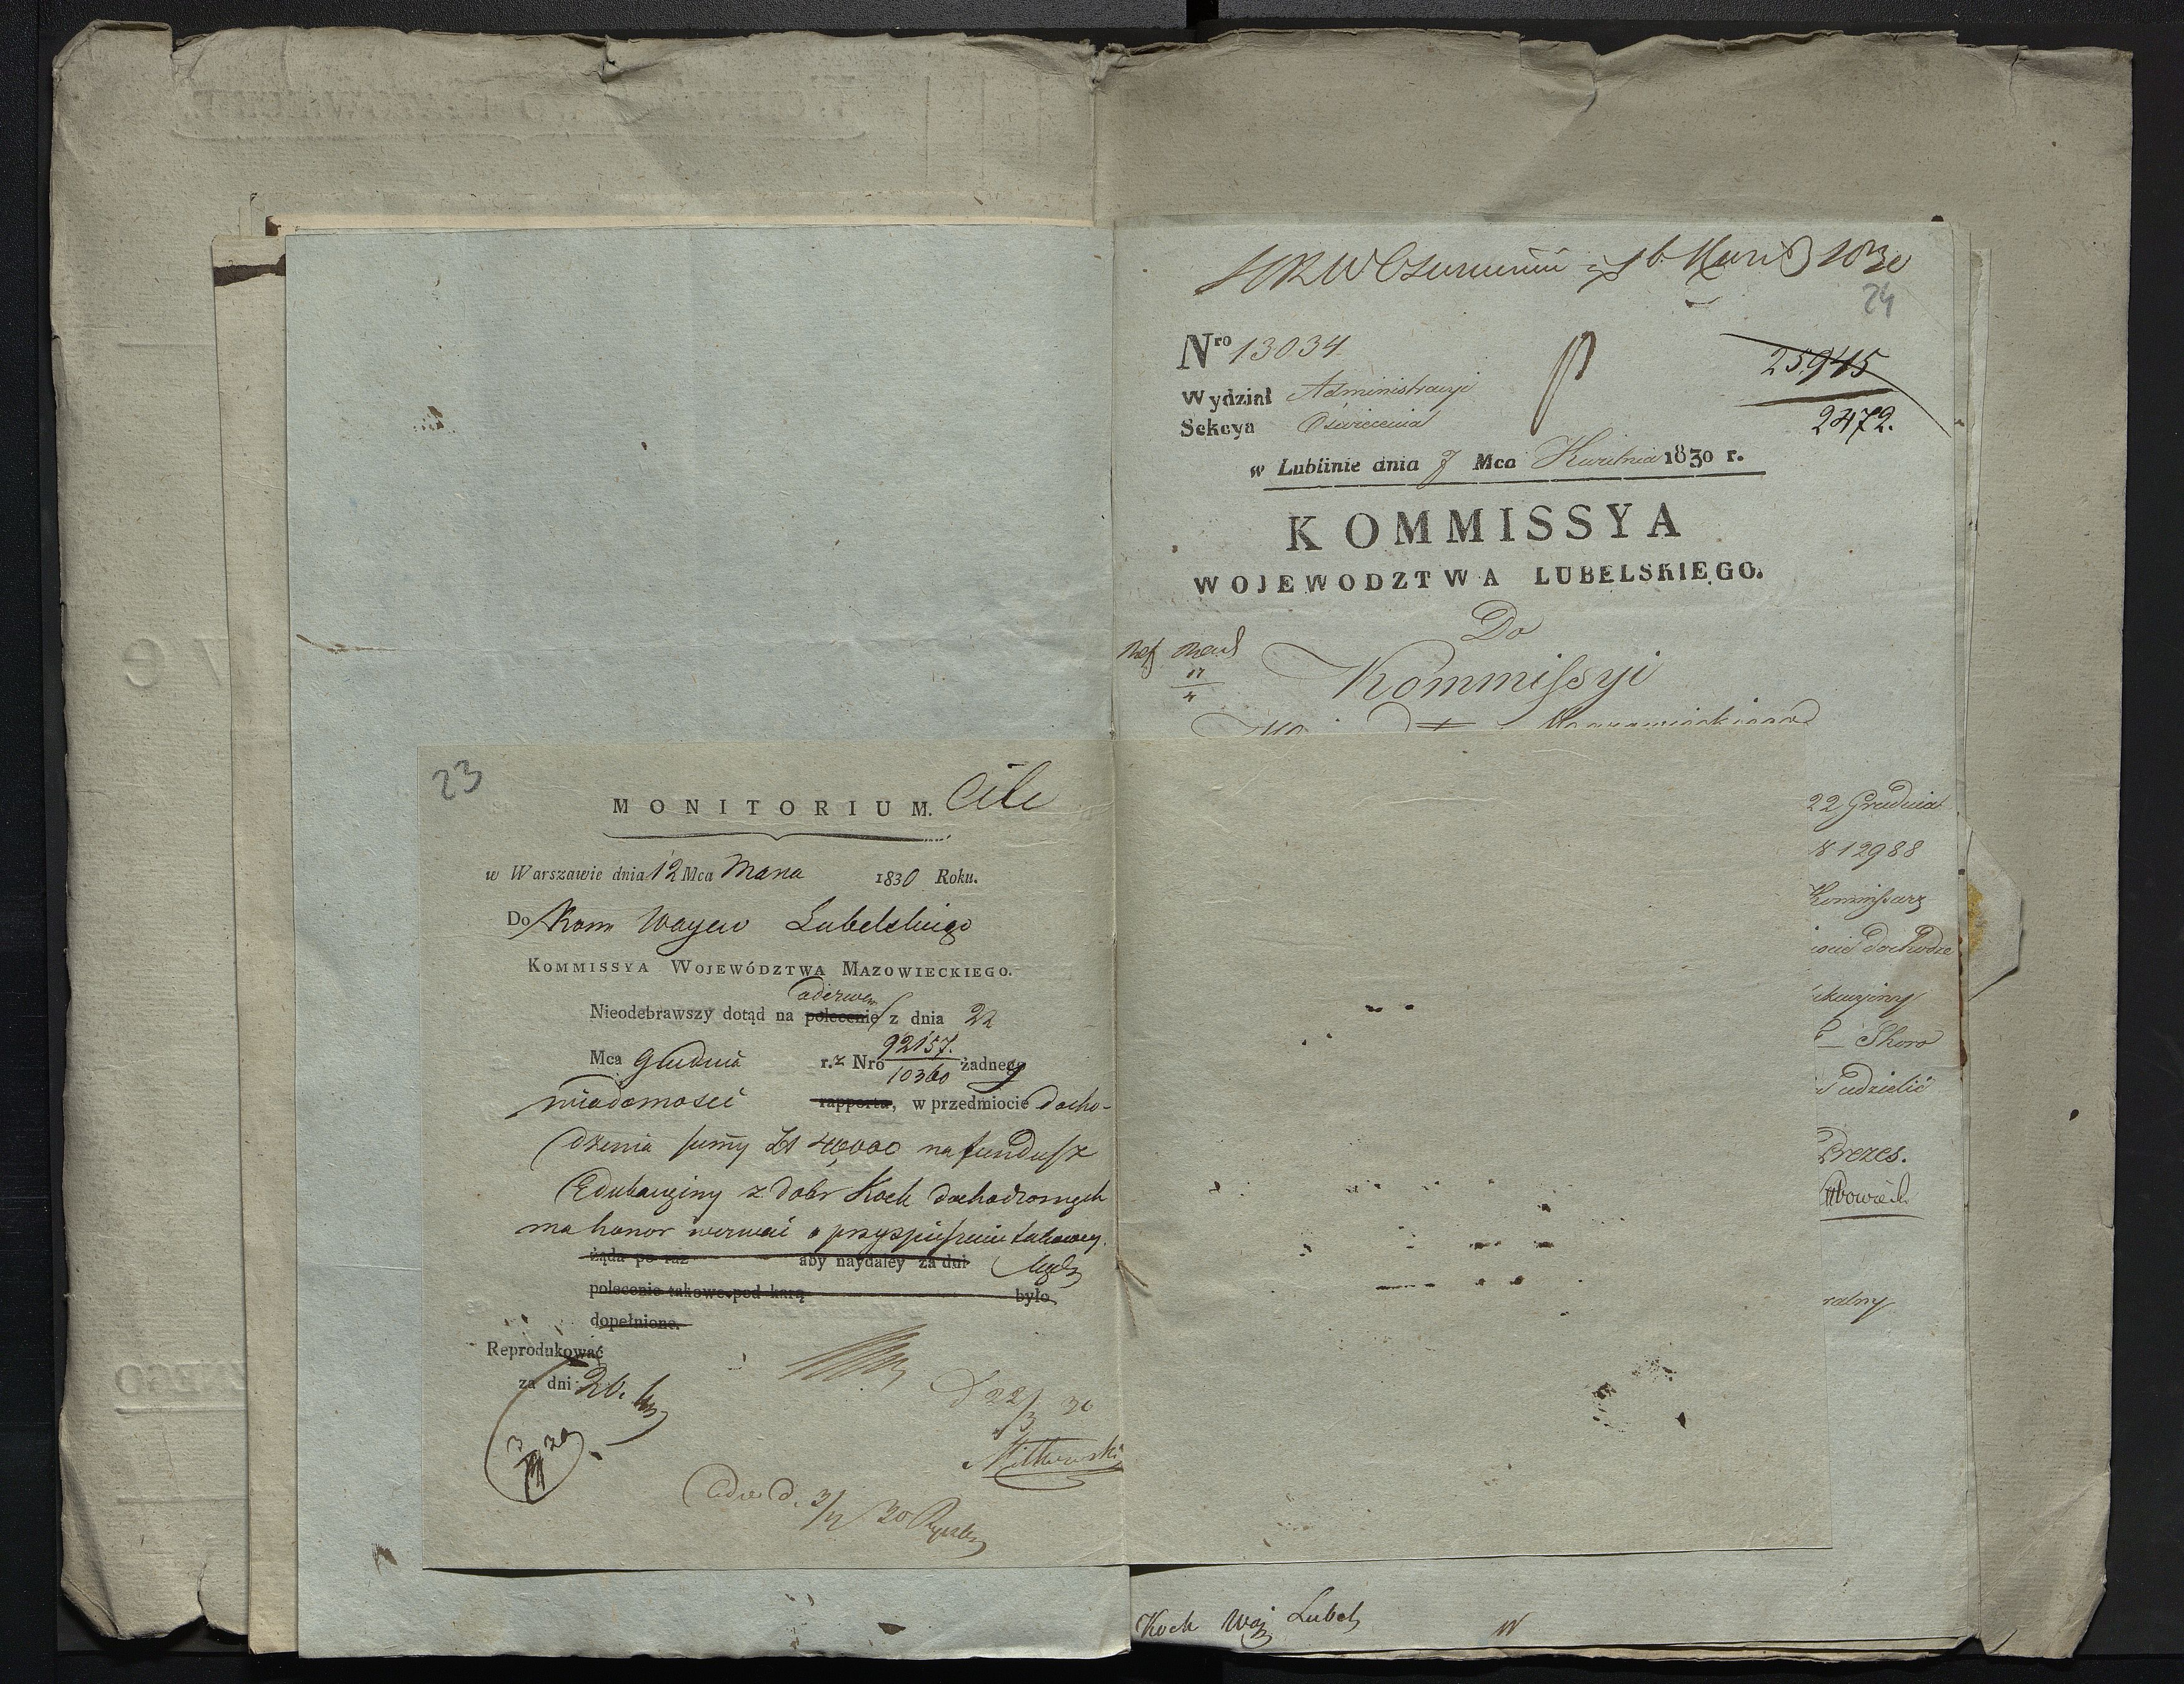 23
MONITORIUM. Cito
w Warszawie dnia 12 Mca Marca 1830 Roku.
Do Kom Wojew Lubelskiego
KOMMISSYA WOJEWÓDZTWA MAZOWIECKIEGO.
odezwę
Nieodebrawszy dotąd na polecenie z dnia 22
Mca Grudnia r. z Nro 92157./10360 żadney
wiadomości rapportu, w przedmiocie docho-
dzenia summy Zł 40,000 na fundusz
Edukacyiny z dobr Kock dochodzonych
ma honor wezwać o przyspieszenie takowey.
żąda po raz aby naydaley za dni
polecenie takowe pod karą było
dopełnione.
Reprodukować
za dni 20.
d 22/3 30
Witkowski
d. 3/4 30
24
Nro 13034
25945
2472.
Wydział Administracyi
Sekcya Oświecenia
w Lublinie dnia 7 Mca Kwietnia 1830 r.
KOMMISSYA
WOJEWODZTWA LUBELSKIEGO.
Do
Kommissyi
17/4
22 Grudnia
12988
Kommissarz
dochodze
Skoro
udzielić
Prezes.
Kock Woj Lubel